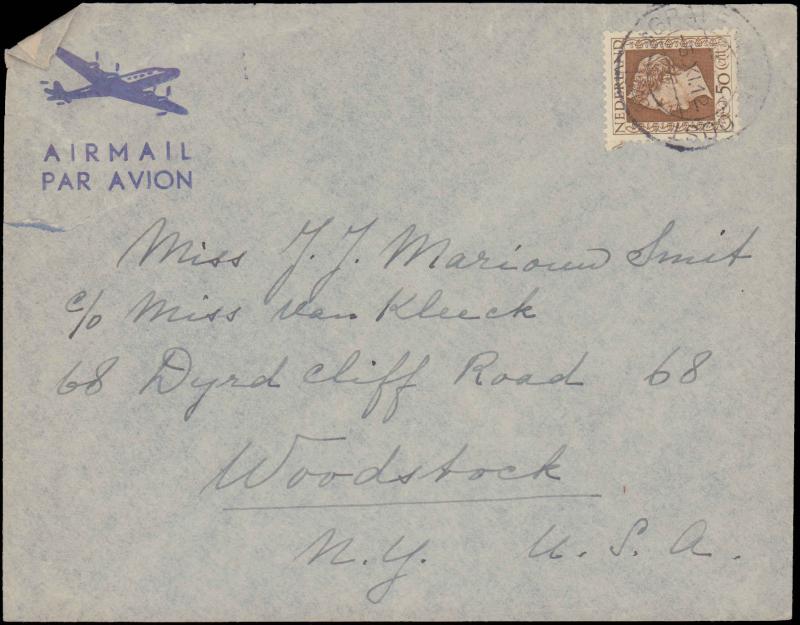 AIRMAIL
PAR AVION
NEDERLAND
50
Miss J. J. Smit
c/o Miss van Kleeck
68 Dyrd cliff Road 68
Woodstock
N.Y. U.S.A.